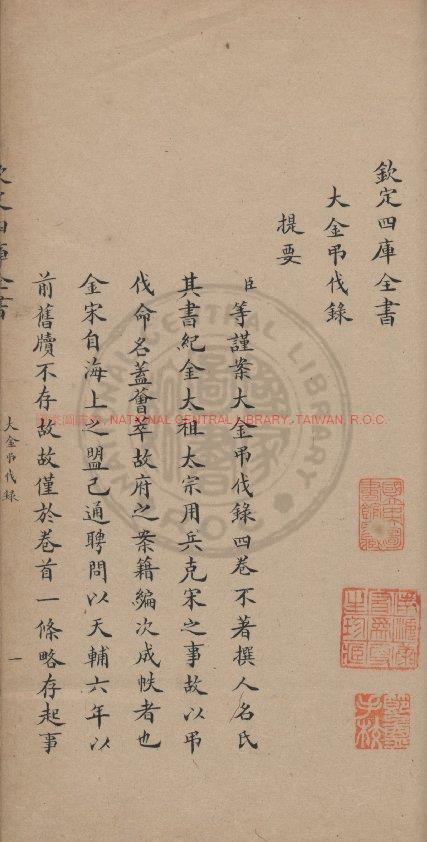 欽定四庫全書
大金弔伐錄
提要
臣等謹案大金弔伐錄四卷不著撰人名氏
其書紀金太祖太宗用兵克宋之事故以弔
伐命名蓋薈萃故府之案籍編次成帙者也
金宋自海上之盟已通聘問以天輔六年以
前舊牘不存故故僅於卷首一條略存起事
欽定四庫全書
大金弔伐錄
一
國家圖書館 NATIONAL CENTRAL LIBRARY, TAIWAN, R.O.C.